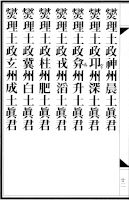 爕理土政神州晨土眞君
爕理土政卭州深土眞君
爕理土政弇州升土眞君
爕理土政戎州滔土眞君
爕理土政柱州肥土眞君
爕理土政冀州白土眞君
爕理土政玄州成土眞君